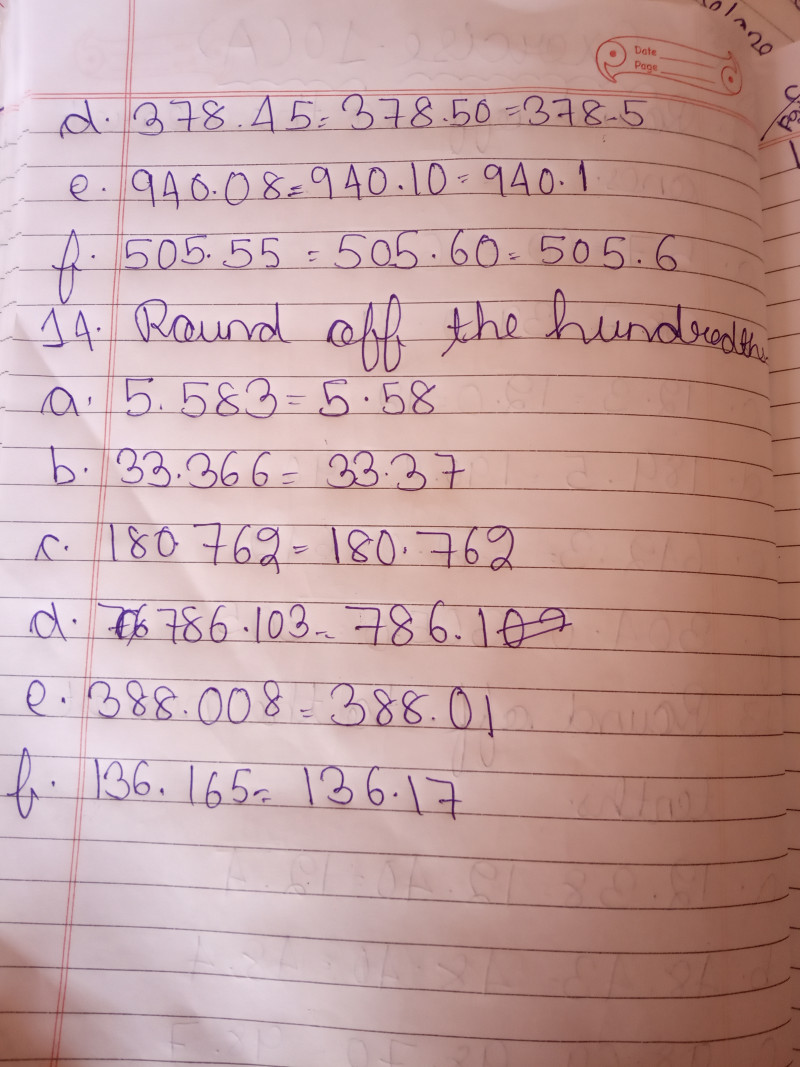 Date
Page
d. 378.45 = 378.50 = 378.5
e. 940.08 = 940.10 = 940.1
f. 505.55 = 505.60 = 505.6
14. Round off the hundredths
a. 5.583 = 5.58
b. 33.366 = 33.37
c. 180.762 = 180.762
d. 786.103 = 786.1
e. 388.008 = 388.01
f. 136.165 = 136.17